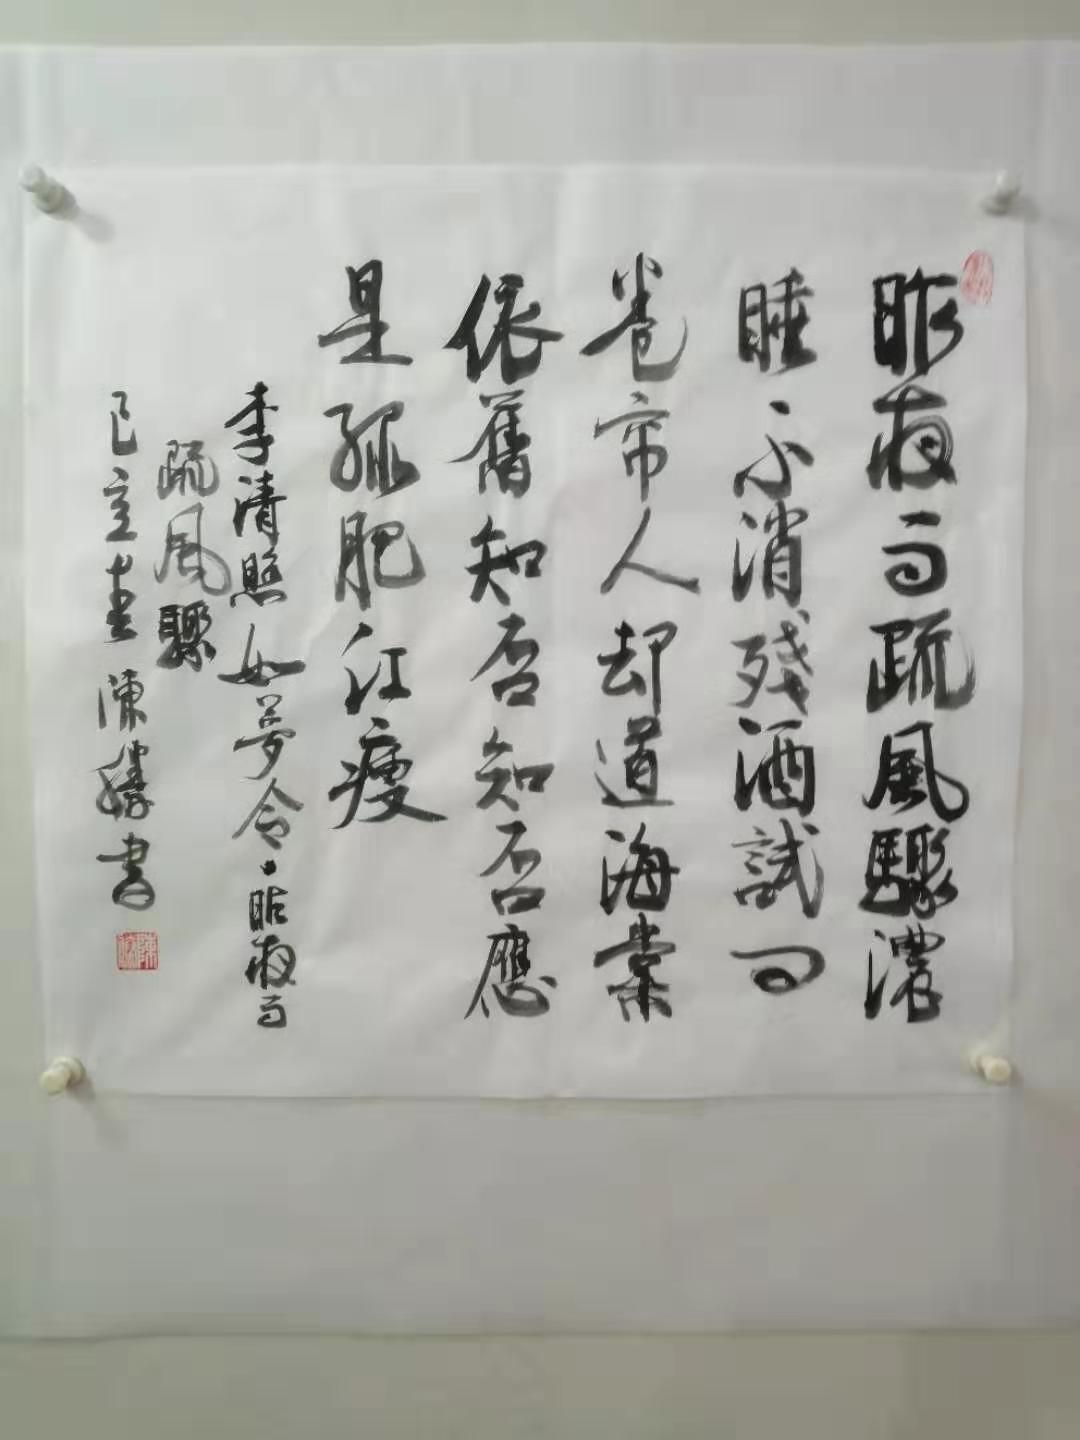 昨夜雨疏風驟濃
睡不消残酒試问
卷帘人却道海棠
依舊知否知否應
是緑肥红瘦
李清照如夢令·昨夜雨
疏風驟
己亥春 陳勝書